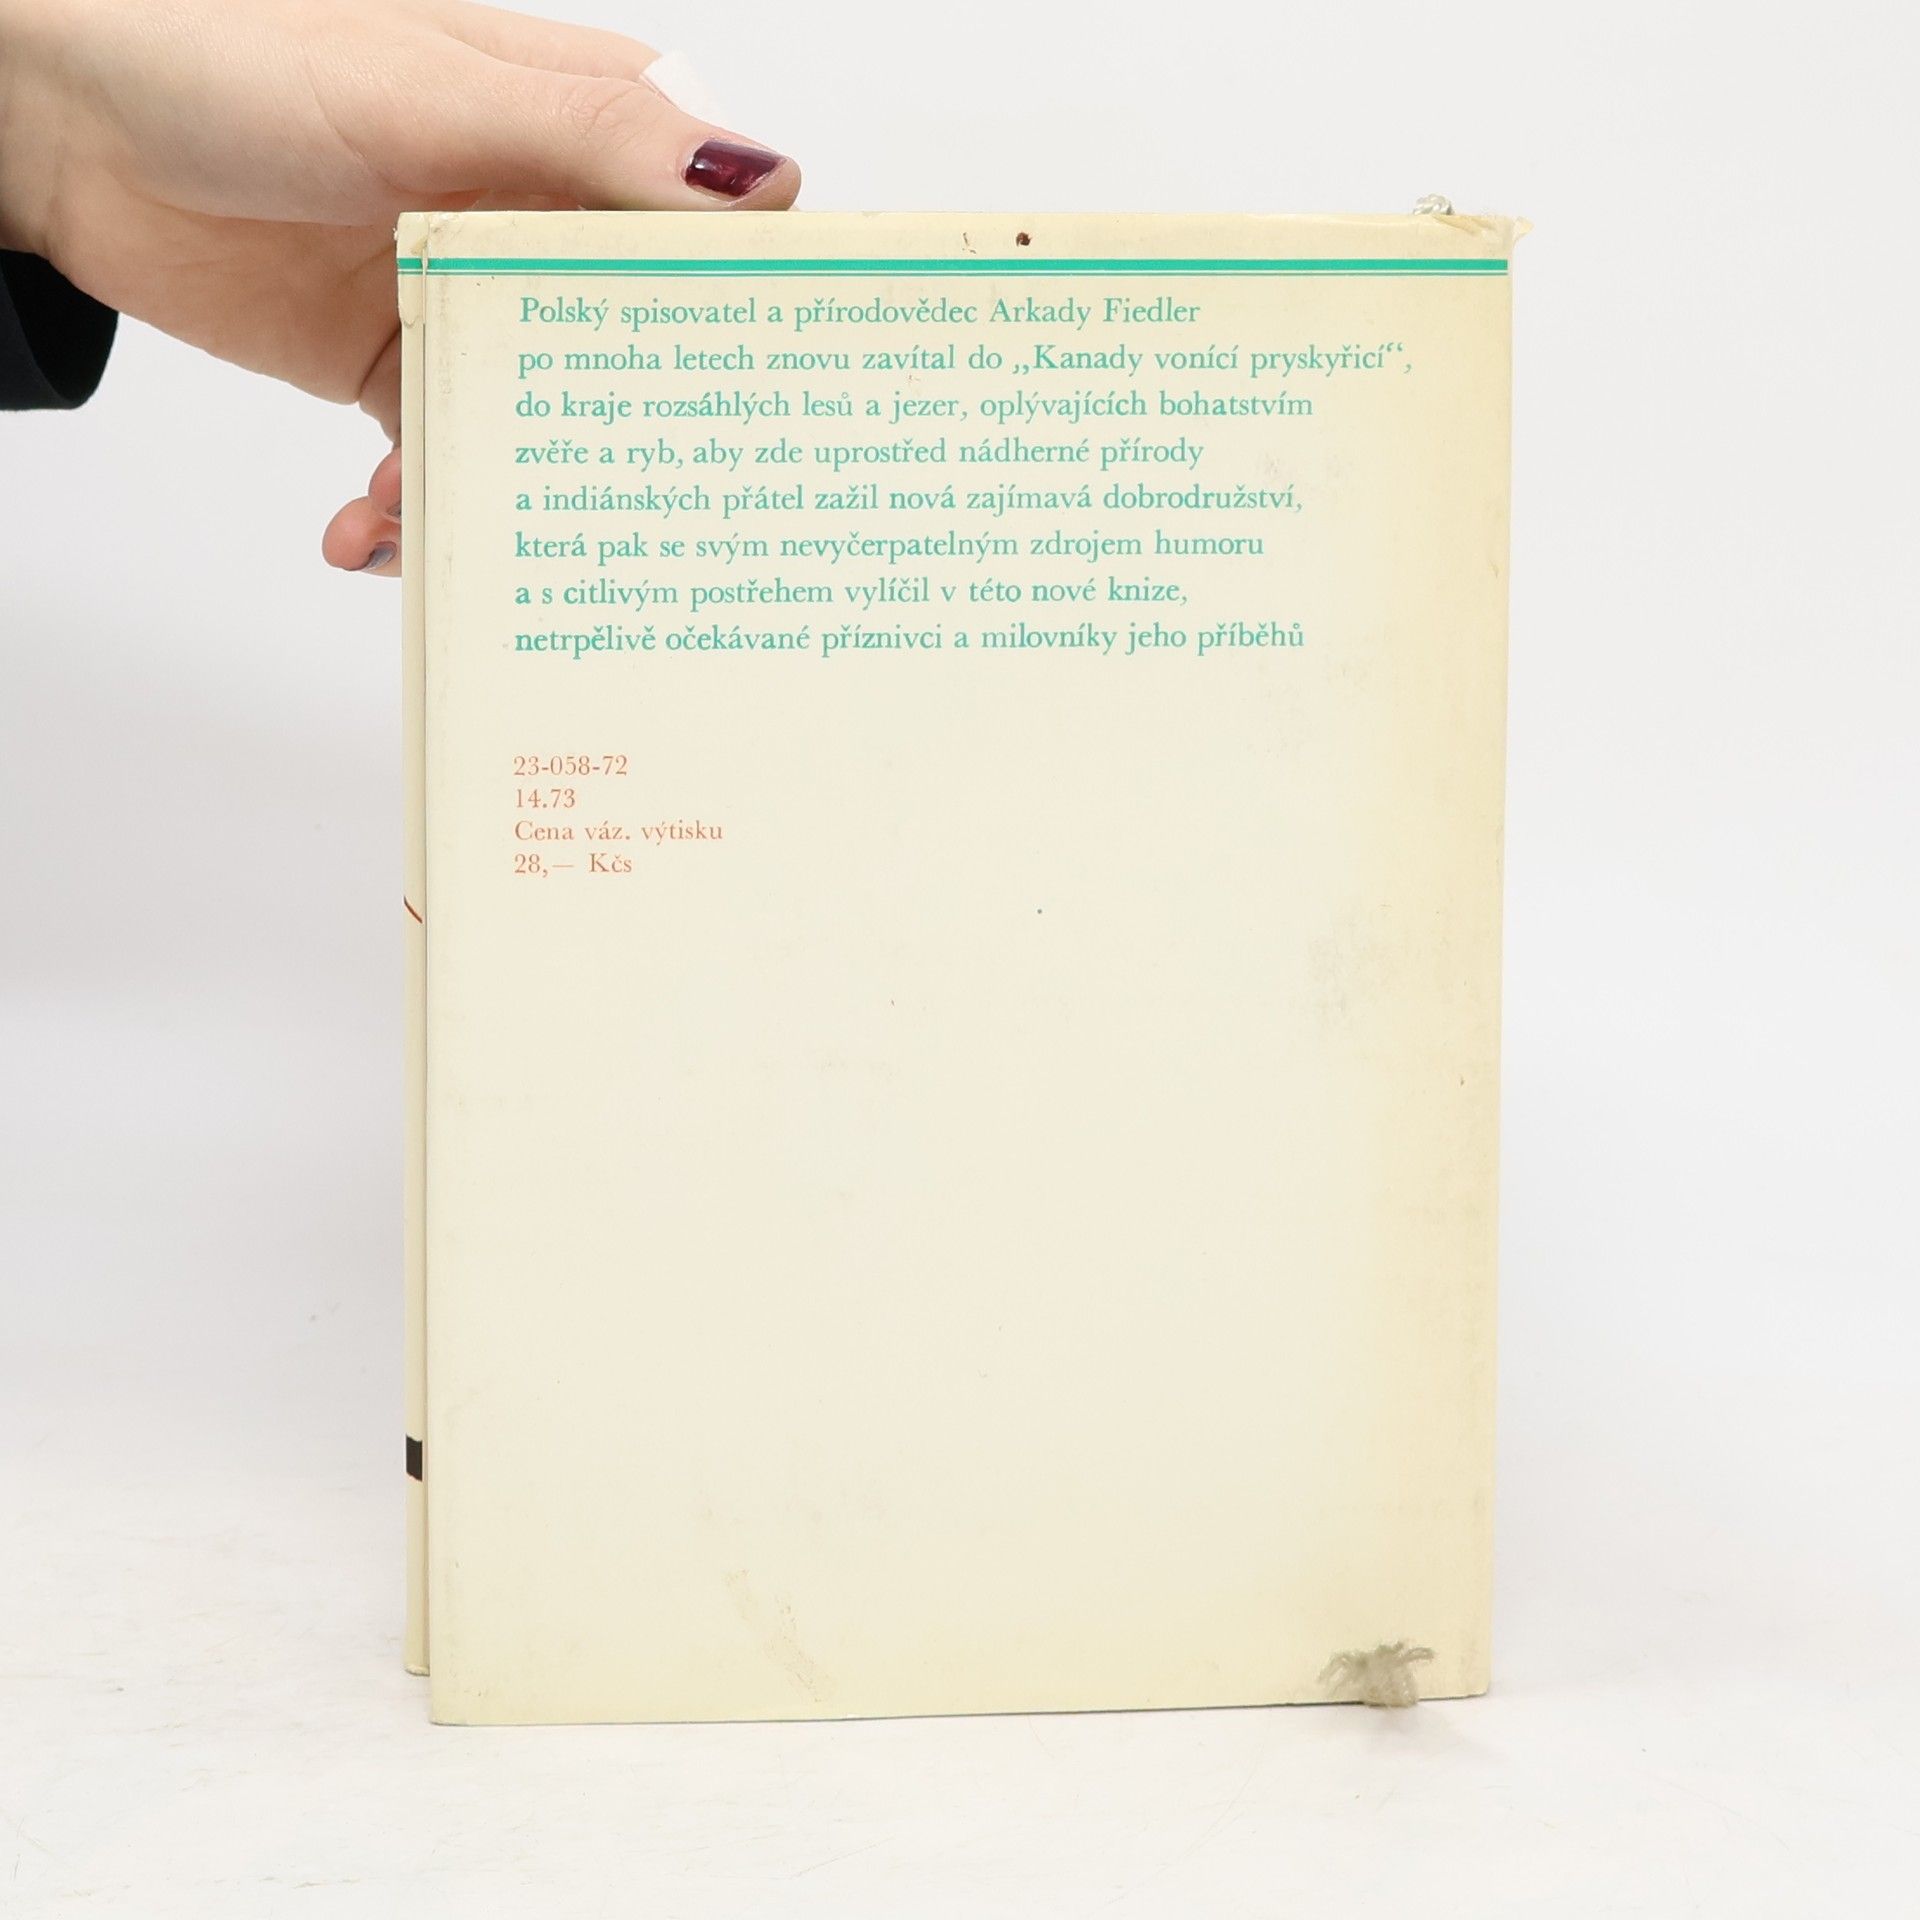 Polský spisovatel a přírodovědec Arkady Fiedler
po mnoha letech znovu zavítal do „Kanady vonící pryskyřicí“,
do kraje rozsáhlých lesů a jezer, oplývajících bohatstvím
zvěře a ryb, aby zde uprostřed nádherné přírody
a indiánských přátel zažil nová zajímavá dobrodružství,
která pak se svým nevyčerpatelným zdrojem humoru
a s citlivým postřehem vylíčil v této nové knize,
netrpělivě očekávané příznivci a milovníky jeho příběhů
23-058-72
14.73
Cena váz. výtisku
28,— Kčs